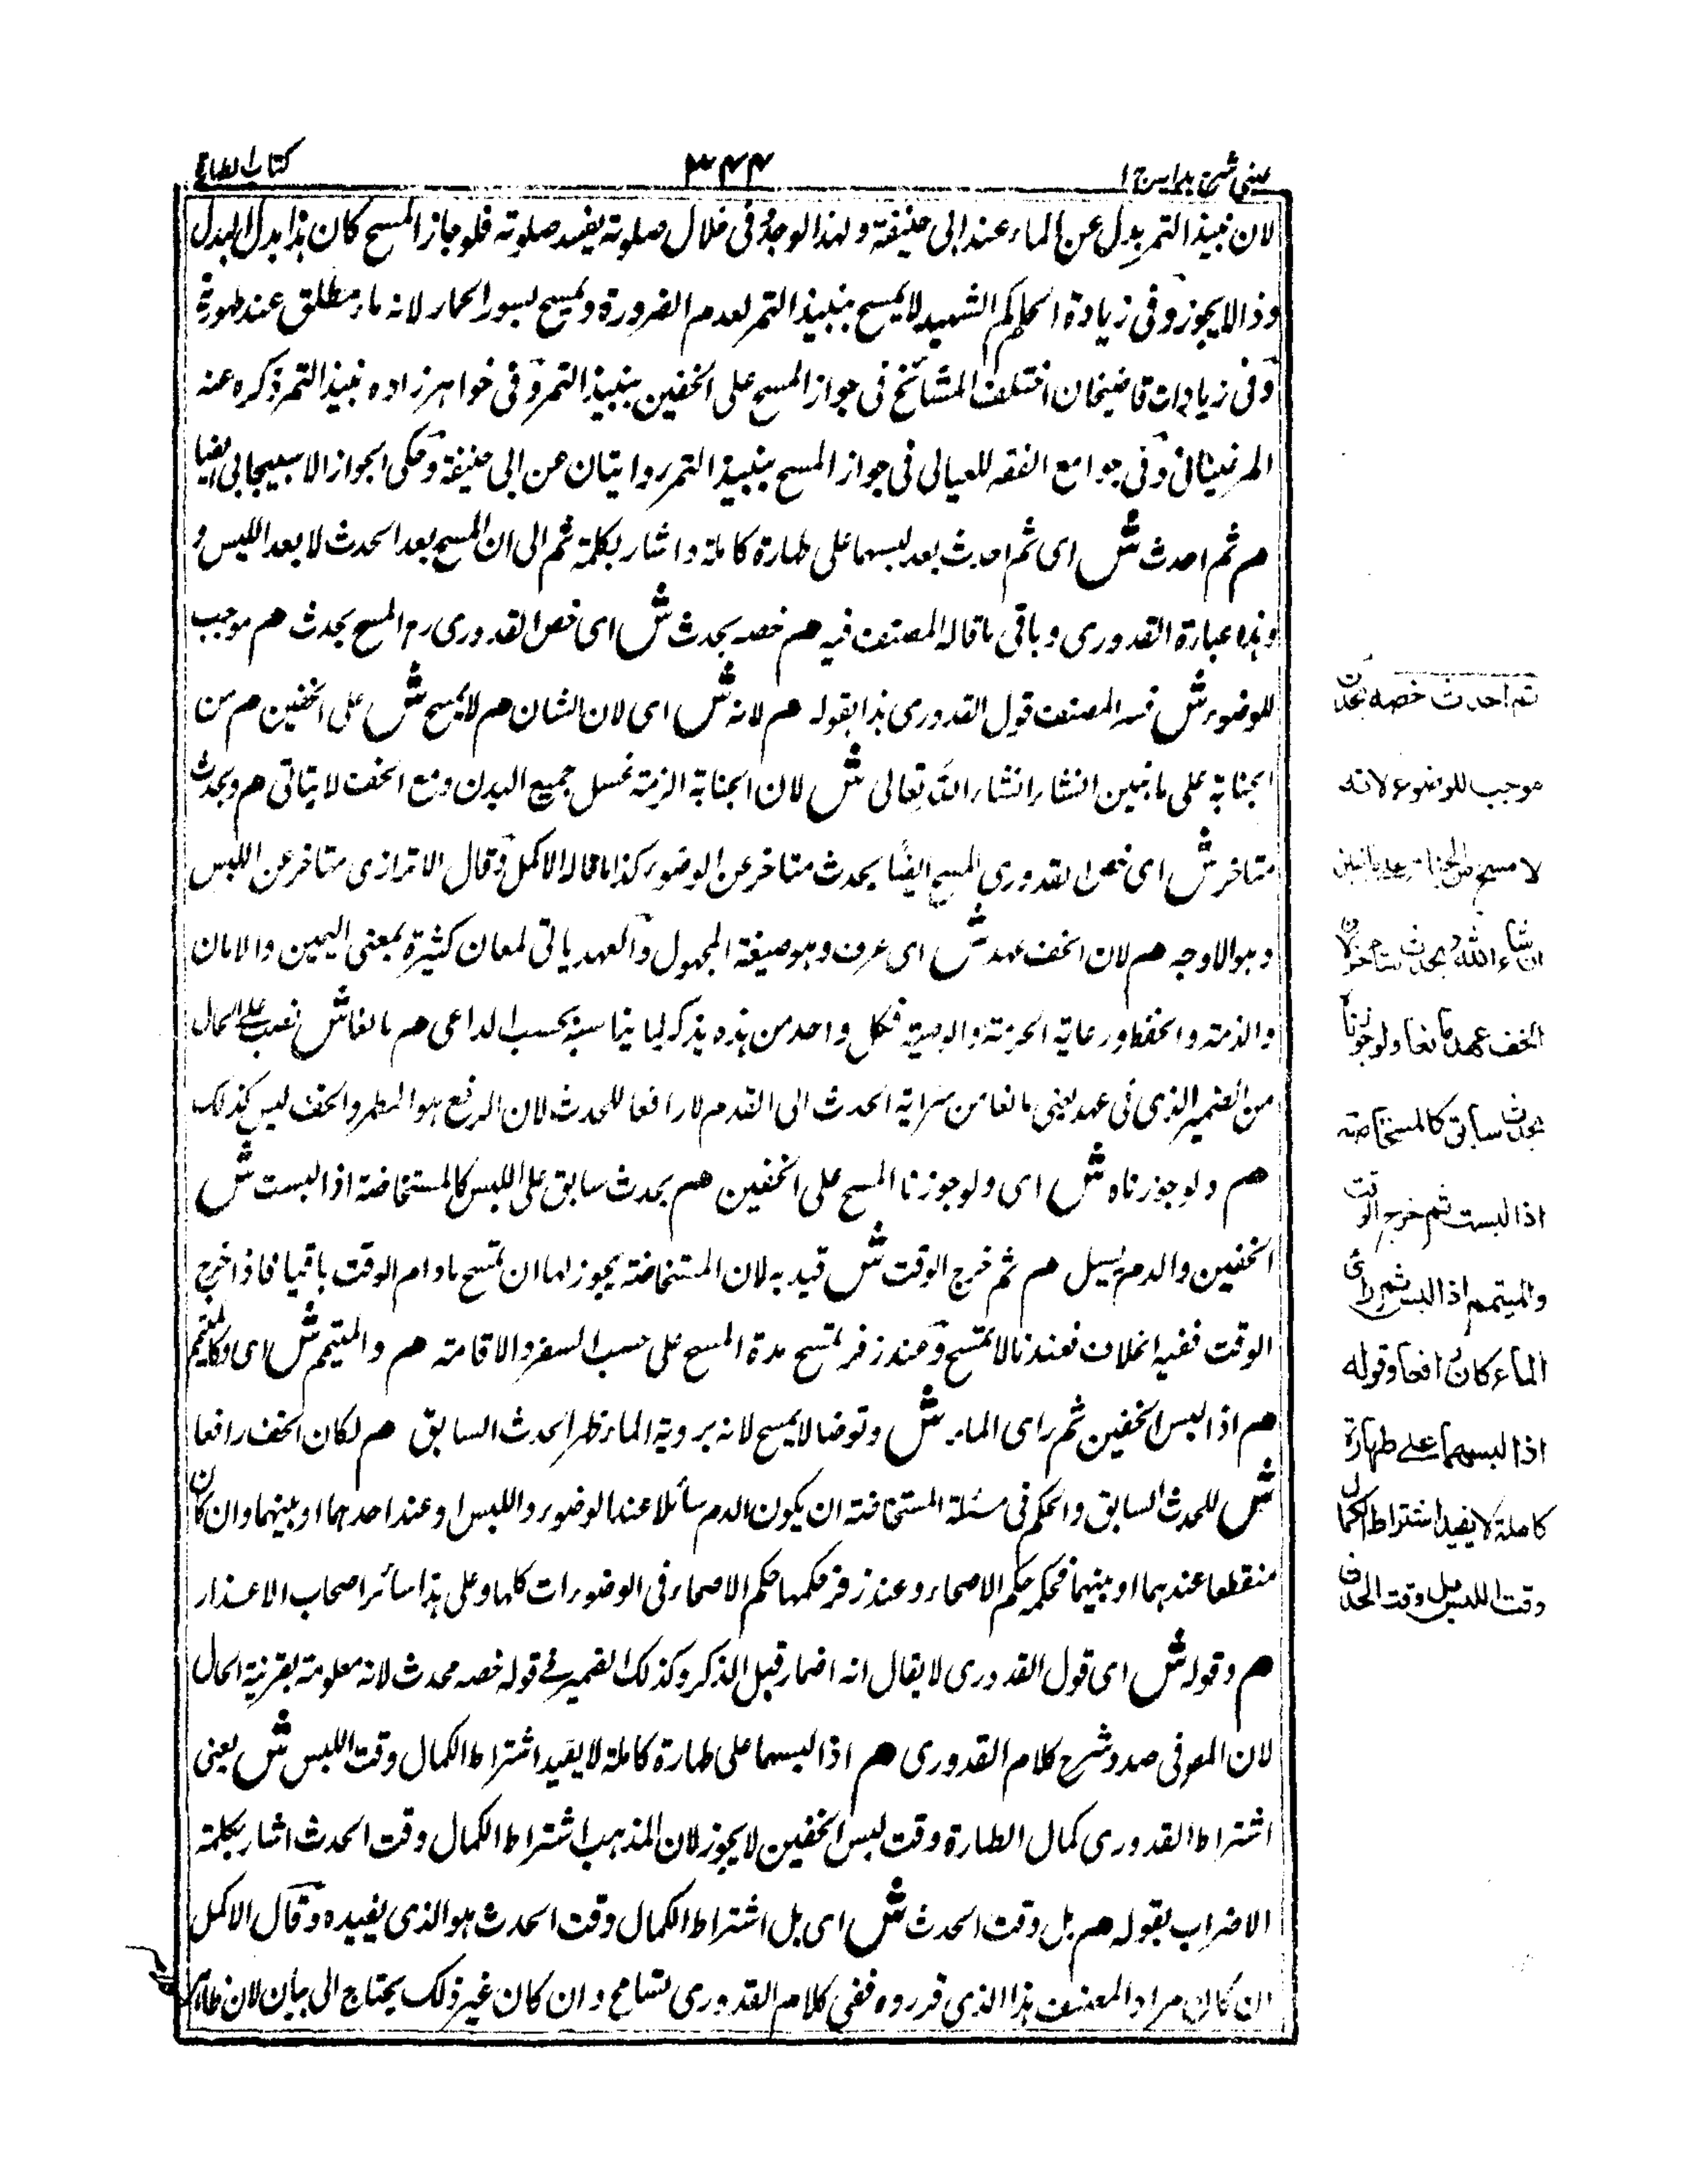 عینی شرح ہدایہ ج ۱
۳۴۴
کتاب الطہارۃ
لان نبیذ التمر بدل عن الماء عند ابی حنیفۃ ولہذا لو وجدہ فی خلال صلوتہ یفسد صلوتہ فلو جاز المسح کان ہذا بدل البدل
وذا لا یجوز وفی زیادۃ الحاکم الشہید لا یمسح بنبیذ التمر لعدم الضرورۃ ویمسح بسور الحمار لانہ ماء مطلق عند طہوریتہ
وفی زیادات قاضیخان اختلف المشائخ فی جواز المسح علی الخفین بنبیذ التمر وفی خواہر زادہ نبیذ التمر ذکرہ عنہ
المرغینانی وفی جوامع الفقہ للعیالی فی جواز المسح بنبیذ التمر روایتان عن ابی حنیفۃ وحکی الجواز الاسبیجابی ایضا
م ثم احدث ش ای ثم احدث بعد لبسہما علی طہارۃ کاملۃ واشار بکلمۃ ثم الی ان المسح بعد الحدث لا بعد اللبس و
وہذہ عبارۃ القدوری وباقی ما قالہ المصنف فیہ م خصہ بحدث ش ای خص القدوری رح المسح بحدث م موجب
للوضوء ش فسر المصنف قول القدوری ہذا بقولہ م لانہ ش ای لان الشان م لا یمسح ش علی الخفین م من
الجنابۃ علی ما نبین انشاء اللہ تعالی ش لان الجنابۃ الزمتہ غسل جمیع البدن ومع الخف لا یتاتی م وبحدث
متاخر ش ای خص القدوری المسح ایضًا بحدث متاخر عن الوضوء کذا ما قالہ الاکمل وقال الاترازی متاخر عن اللبس
وہو الاوجہ م لان الخف عہد ش ای عرف وہو صیغۃ المجہول والعہد یاتی لمعان کثیرۃ بمعنی الیمین والامان
والذمۃ والحفظ ورعایۃ الحرمۃ والوصیۃ فکل واحد من ہذہ یذکر لما یناسبہ بحسب الداعی م مانعا ش نصب علی الحال
من الضمیر الذی فی عہد یعنی مانعا من سرایۃ الحدث الی القدم م لا رافعا للحدث لان الرفع ہو المطہر والخف لیس کذلک
م ولو جوزناہ ش ای ولو جوزنا المسح علی الخفین م بحدث سابق علی اللبس کالمستحاضۃ اذا لبست ش
الخفین والدم یسیل م ثم خرج الوقت ش قید بہ لان المستحاضۃ یجوز لہا ان تمسح ما دام الوقت باقیا فاذا خرج
الوقت ففیہ الخلاف فعندنا لا تمسح وعند زفر تمسح مدۃ المسح علی حسب السفر والاقامۃ م والمتیمم ش ای وکالمتیمم
م اذا لبس الخفین ثم رای الماء ش وتوضا لا یمسح لانہ برویۃ الماء ظہر الحدث السابق م لکان الخف رافعا
ش للحدث السابق والحکم فی مسئلۃ المستحاضۃ ان یکون الدم سائلا عند الوضوء واللبس او عند احدہما او بینہما وان کان
منقطعا عندہما او بینہما فحکمہ حکم الاصحاء وعند زفر حکمہا حکم الاصحاء فی الوضوءات کلہا وعلی ہذا سائر اصحاب الاعذار
م وقولہ ش ای قول القدوری لا یقال انہ اضمار قبل الذکر وکذلک الضمیر فی قولہ خصہ بحدث لانہ معلومۃ بقرینۃ الحال
لان المص فی صدد شرح کلام القدوری م اذا لبسہما علی طہارۃ کاملۃ لا یفید اشتراط الکمال وقت اللبس ش یعنی
اشتراط القدوری کمال الطہارۃ وقت لبس الخفین لا یجوز لان المذہب اشتراط الکمال وقت الحدث اشار بکلمۃ
الاضراب بقولہ م بل وقت الحدث ش ای بل اشتراط الکمال وقت الحدث ہو الذی یفیدہ وقال الاکمل
ان کان مراد المصنف ہذا الذی قررہ ففی کلام القدوری تسامح وان کان غیر ذلک یحتاج الی بیان لان ظاہر
ثم احدث خصہ بحدث
موجب للوضوء لانہ
لا مسح من الجنابۃ علی ما نبین
ان شاء اللہ وبحدث متاخر لان
الخف عہد مانعا ولو جوزنا
بحدث سابق کالمستحاضۃ
اذا لبست ثم خرج الوقت
والمتیمم اذا لبس ثم رای
الماء کان رافعا وقولہ
اذا لبسہما علی طہارۃ
کاملۃ لا یفید اشتراط الکمال
وقت اللبس بل وقت الحدث